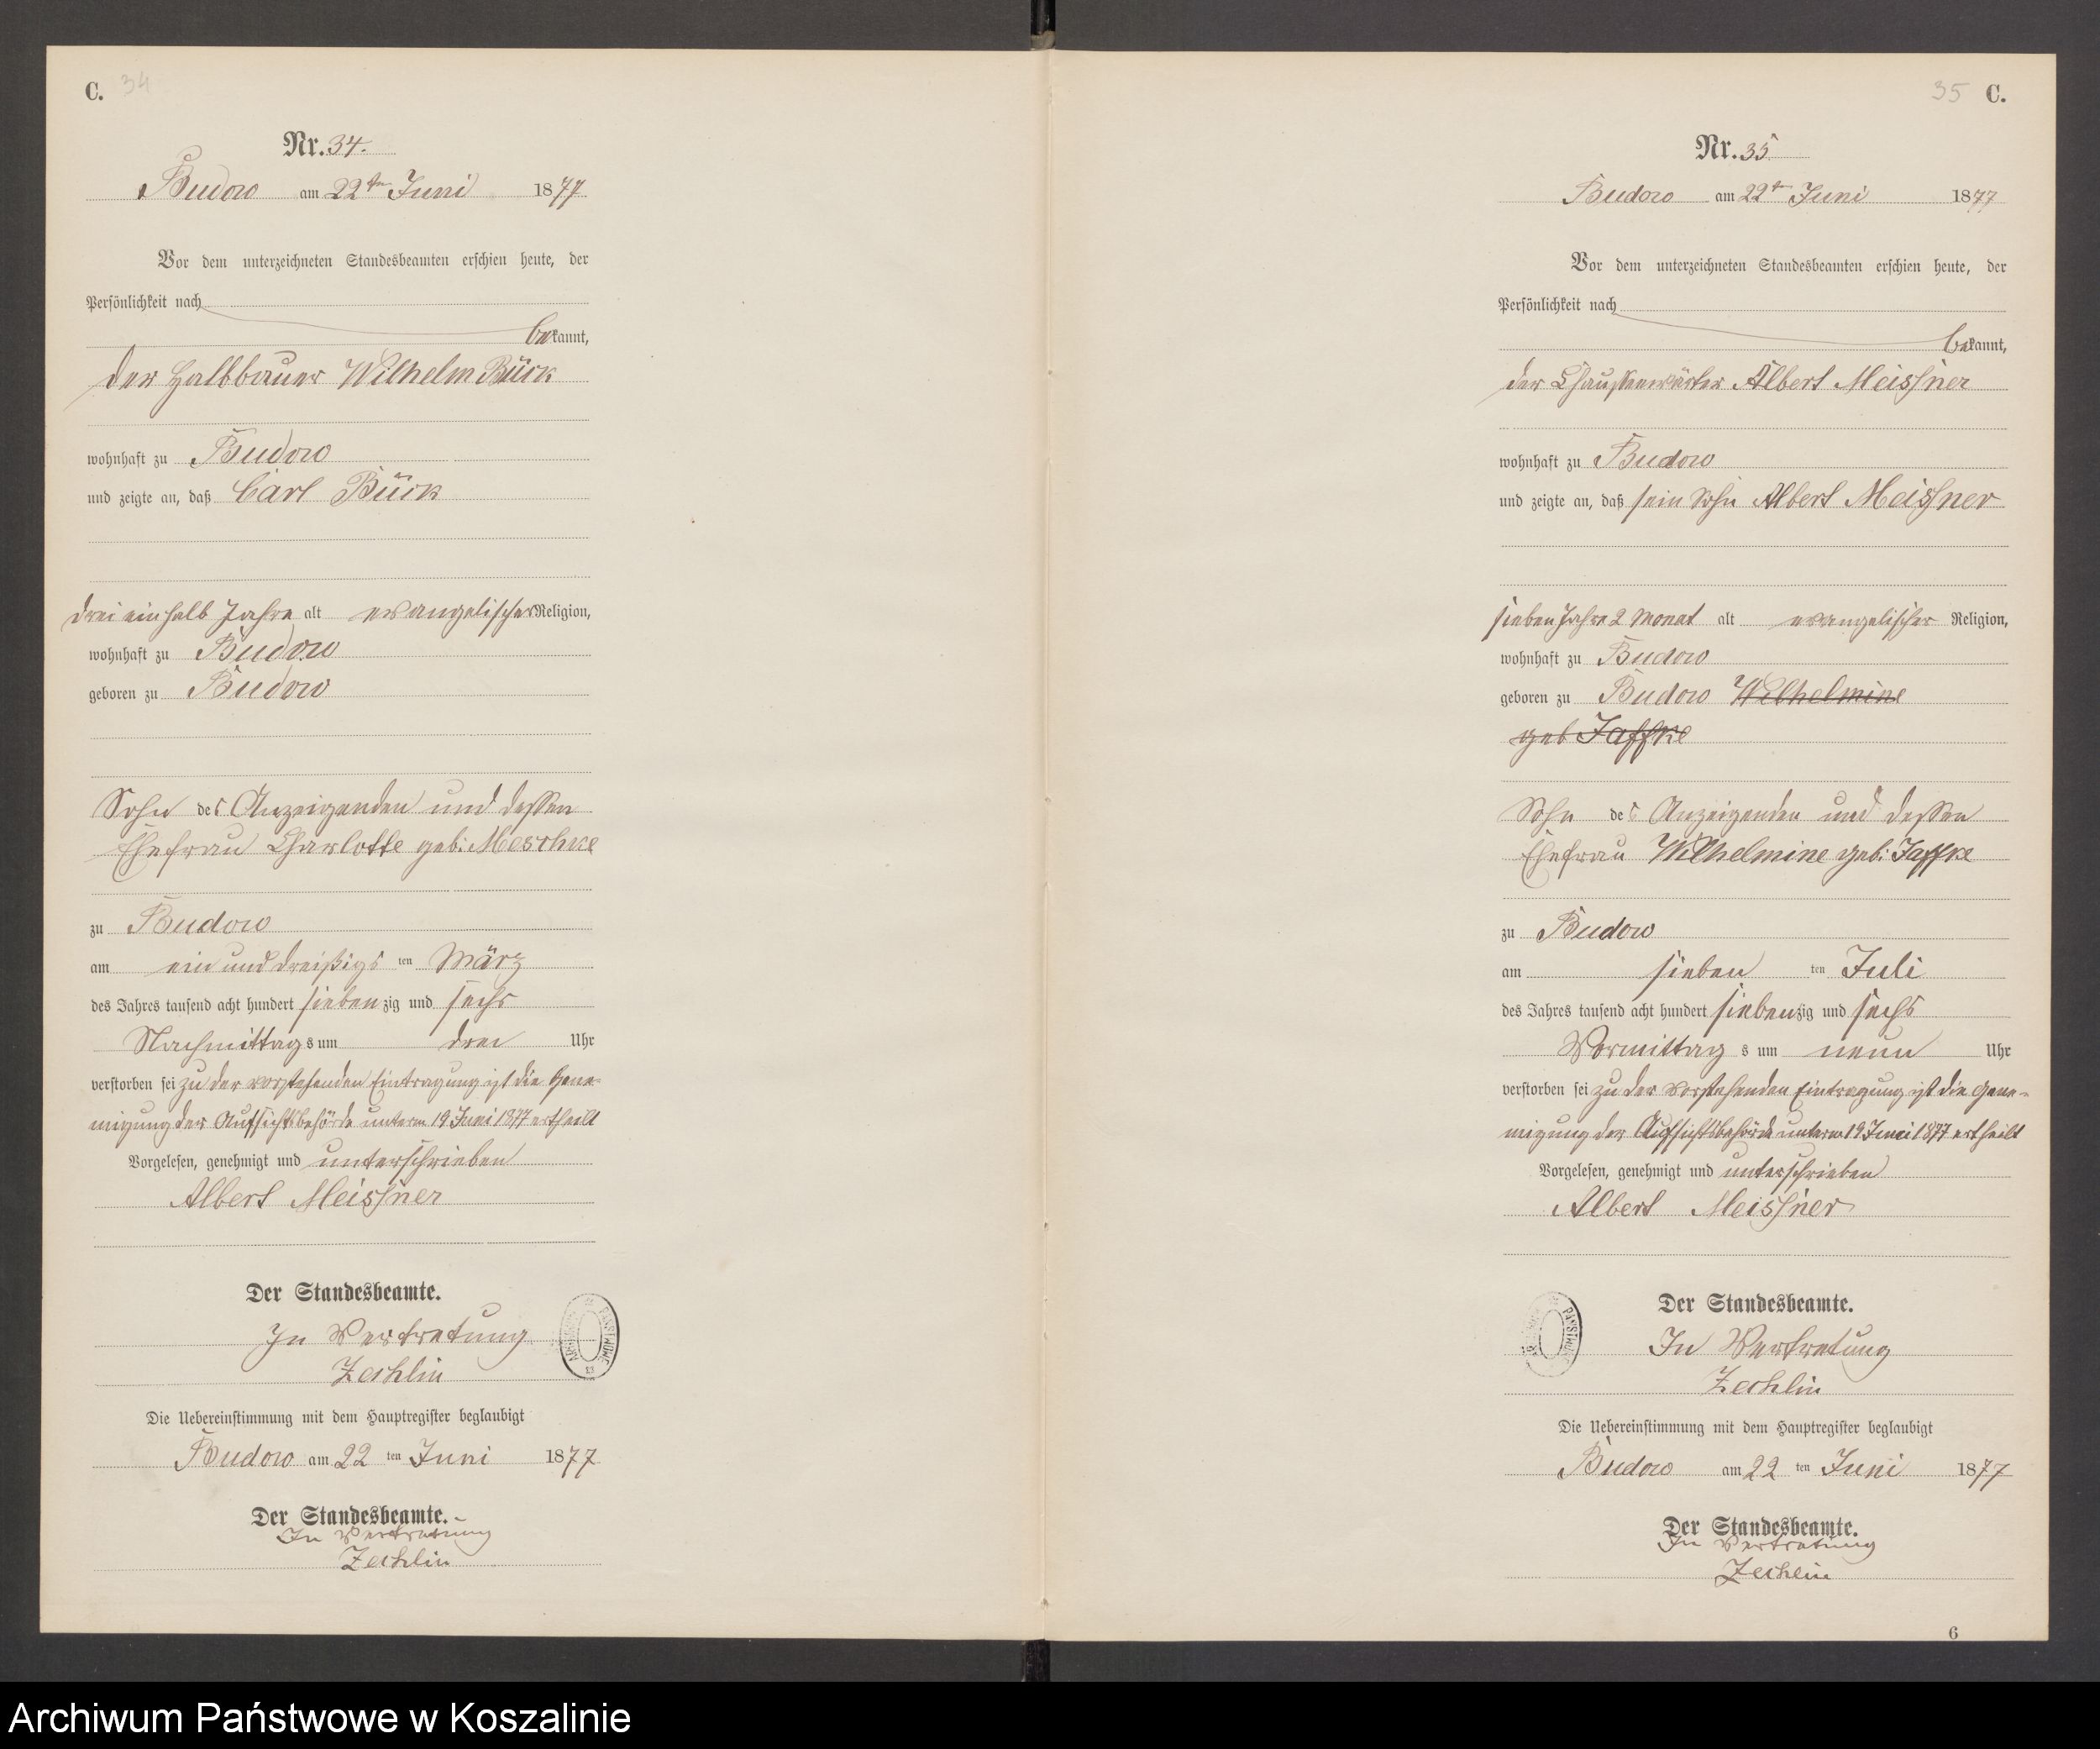 C. 34
Nr. 34.
Budow am 22ten Juni 1877
Vor dem unterzeichneten Standesbeamten erschien heute, der
Persönlichkeit nach
bekannt,
der Halbbauer Wilhelm Bück
wohnhaft zu Budow
und zeigte an, daß Carl Bück
drei ein halb Jahre alt evangelischer Religion,
wohnhaft zu Budow
geboren zu Budow
Sohn des Anzeigenden und dessen
Ehefrau Charlotte geb: Meschke
zu Budow
am ein und dreißigsten März
des Jahres tausend acht hundert siebenzig und sechs
Nachmittags um drei Uhr
verstorben sei zu der vorstehenden Eintragung ist die Gene-
migung der Aufsichtsbehörde unterm 19 Juni 1877 ertheilt
Vorgelesen, genehmigt und unterschrieben
Albert Meissner
Der Standesbeamte.
In Vertretung
Zechlin
ARCHIWUM PAŃSTWOWE
Die Uebereinstimmung mit dem Hauptregister beglaubigt
Budow am 22 ten Juni 1877
Der Standesbeamte.
In Vertretung
Zechlin
35 C.
Nr. 35
Budow am 22ten Juni 1877
Vor dem unterzeichneten Standesbeamten erschien heute, der
Persönlichkeit nach
bekannt,
der Chausseewärter Albert Meissner
wohnhaft zu Budow
und zeigte an, daß sein Sohn Albert Meissner
sieben Jahre 2 Monat alt evangelischer Religion,
wohnhaft zu Budow
geboren zu Budow Wilhelmine
geb Jaffke
Sohn des Anzeigenden und dessen
Ehefrau Wilhelmine geb: Jaffke
zu Budow
am sieben ten Juli
des Jahres tausend acht hundert siebenzig und sechs
Vormittags um neun Uhr
verstorben sei zu der vorstehenden Eintragung ist die Gene-
migung der Aufsichtsbehörde unterm 19 Juni 1877 ertheilt
Vorgelesen, genehmigt und unterschrieben
Albert Meissner
Der Standesbeamte.
In Vertretung
Zechlin
ARCHIWUM PAŃSTWOWE
Die Uebereinstimmung mit dem Hauptregister beglaubigt
Budow am 22 ten Juni 1877
Der Standesbeamte.
In Vertretung
Zechlin
6
Archiwum Państwowe w Koszalinie